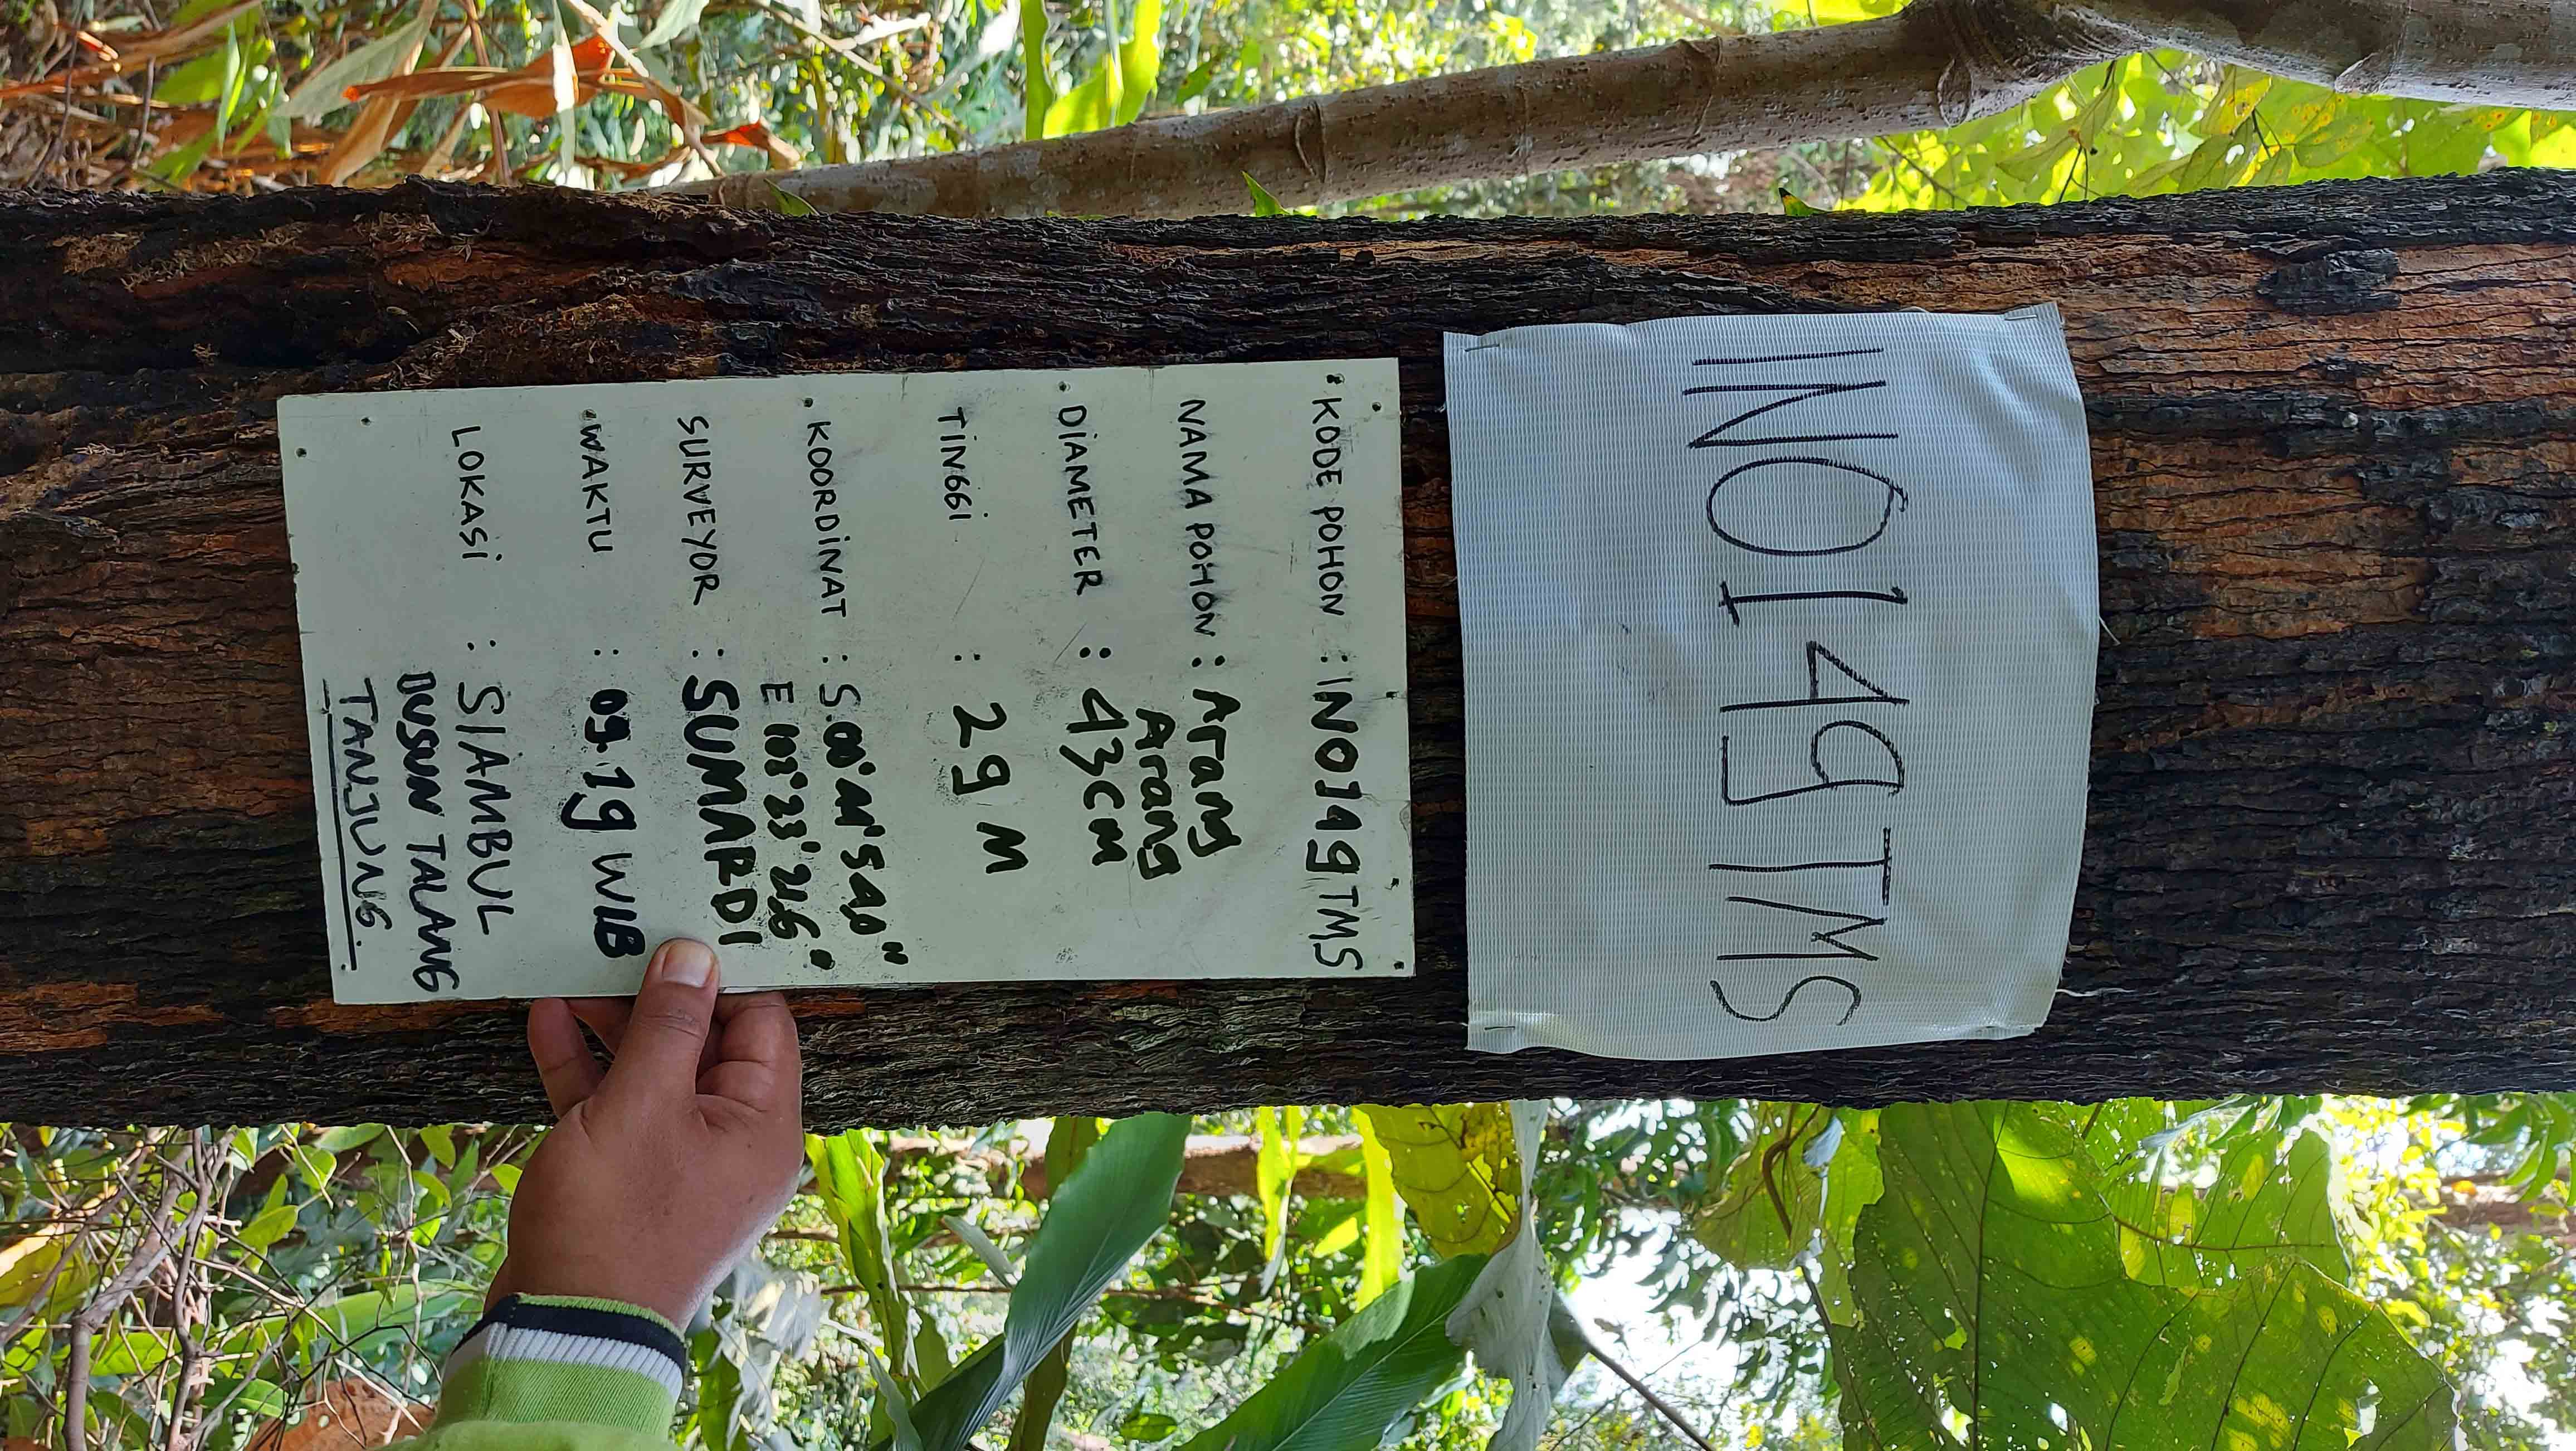 INO149TMS
KODE POHON : INO149TMS
NAMA POHON : Arang
Arang
DIAMETER : 43CM
TINGGI : 29 M
KOORDINAT : S.00°44'54,0"
E 23' 21,6"
SURVEYOR : SUMARDI
WAKTU : 09.19 WIB
LOKASI : SIAMBUL
DUSUN TALANG
TANJUNG.